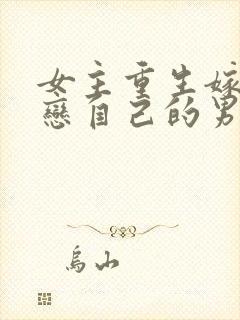 女主重生嫁
戀自己的男
烏山